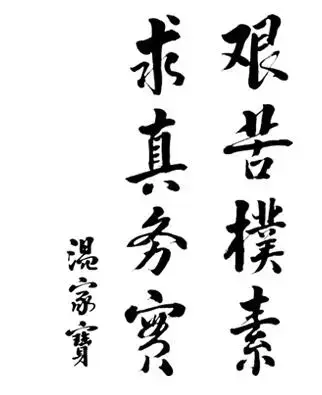 艰苦樸素
求真务實
温家寶